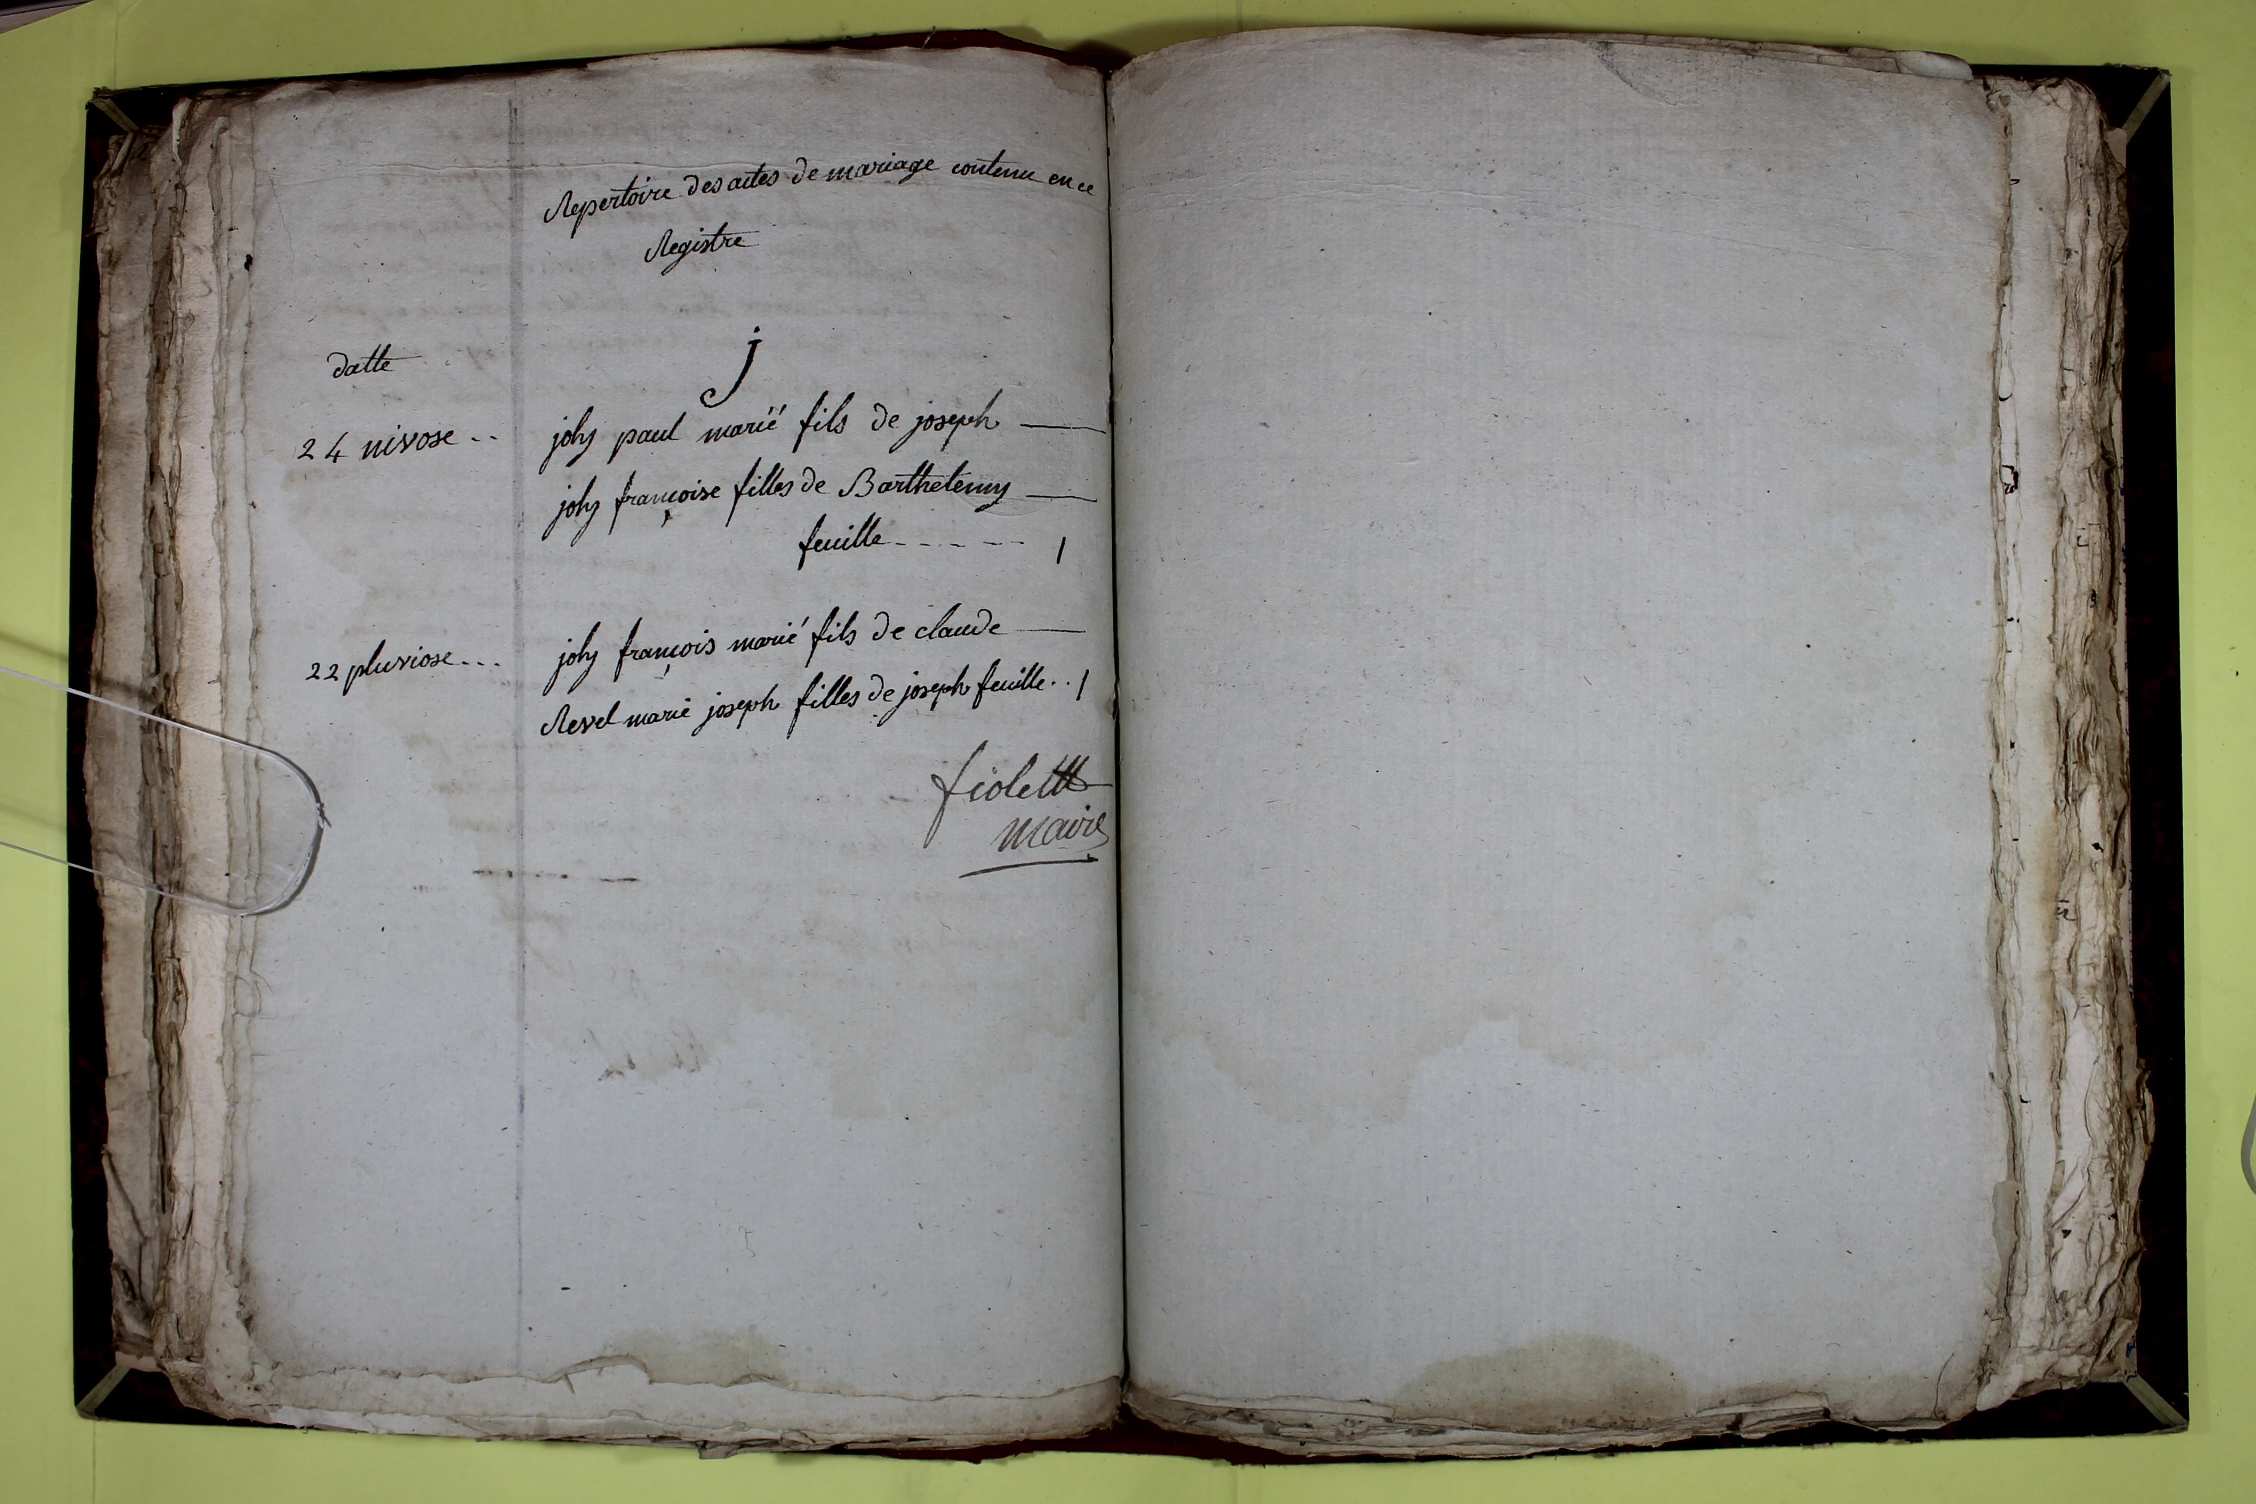 Repertoire des actes de mariage contenu en ce
Registre
datte
j
24 nivose -- joly paul marié fils de joseph
joly françoise filles de Barthelemy
feuille ------ 1
22 pluviose --- joly françois marié fils de claude
Revel marie joseph filles de joseph feuille .. 1
maire